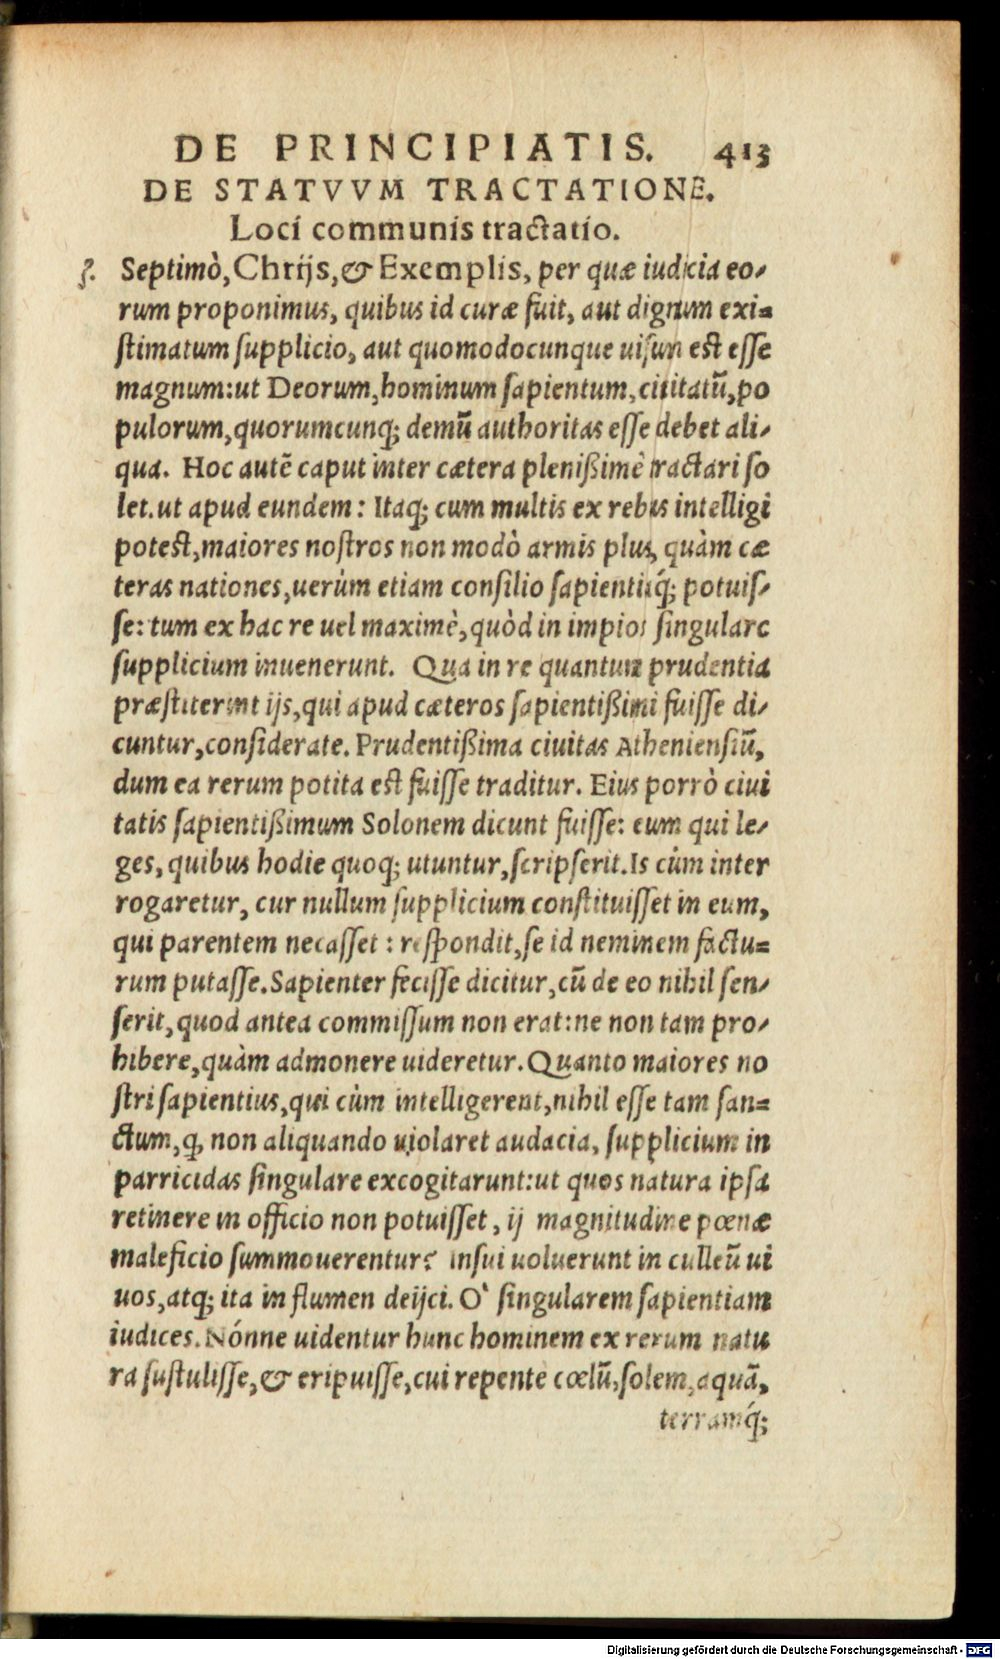 DE PRINCIPIATIS. 413
DE STATVVM TRACTATIONE.
Loci communis tractatio.
Septimò, Chrijs, & Exemplis, per quæ iudicia eo-
rum proponimus, quibus id curæ fuit, aut dignum exi=
stimatum supplicio, aut quomodocunque uisum est esse
magnum: ut Deorum, hominum sapientum, ciuitatũ, po
pulorum, quorumcunq; demũ authoritas esse debet ali-
qua. Hoc autẽ caput inter cætera plenißimè tractari so
let. ut apud eundem: Itaq; cum multis ex rebus intelligi
potest, maiores nostros non modò armis plus, quàm cæ
teras nationes, uerùm etiam consilio sapientiáq; potuis-
se: tum ex hac re uel maximè, quòd in impios singulare
supplicium inuenerunt. Qua in re quantum prudentia
præstiterint ijs, qui apud cæteros sapientißimi fuisse di-
cuntur, considerate. Prudentißima ciuitas Atheniensiũ,
dum ea rerum potita est fuisse traditur. Eius porrò ciui
tatis sapientißimum Solonem dicunt fuisse: eum qui le-
ges, quibus hodie quoq; utuntur, scripserit. Is cùm inter
rogaretur, cur nullum supplicium constituisset in eum,
qui parentem necasset: respondit, se id neminem factu=
rum putasse. Sapienter fecisse dicitur, cũ de eo nihil sen-
serit, quod antea commissum non erat: ne non tam pro-
hibere, quàm admonere uideretur. Quanto maiores no
stri sapientius, qui cùm intelligerent, nihil esse tam san=
ctum, q, non aliquando uiolaret audacia, supplicium in
parricidas singulare excogitarunt: ut quos natura ipsa
retinere in officio non potuisset, ij magnitudine pœnæ
maleficio summouerentur? insui uoluerunt in culleũ ui
uos, atq; ita in flumen deijci. O` singularem sapientiam
iudices. Nónne uidentur hunc hominem ex rerum natu
ra sustulisse, & eripuisse, cui repente cœlũ, solem, aquã,
terramq́;
Digitalisierung gefördert durch die Deutsche Forschungsgemeinschaft - DFG